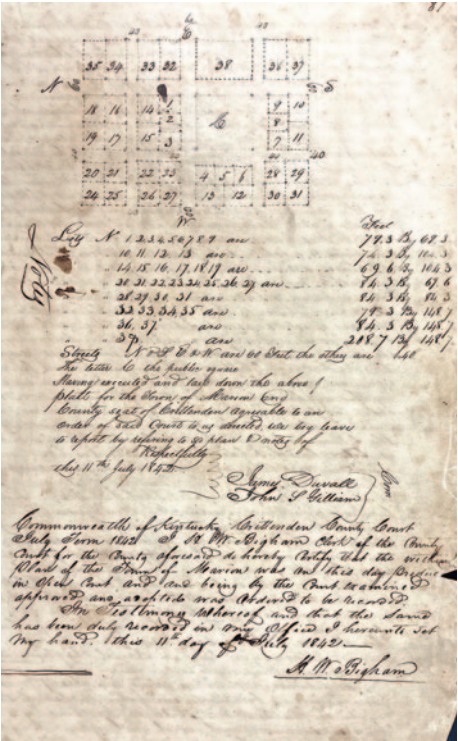 81
60
E
40
40
35 34 33 32 38 36 37
N
60
60 S
18 16 14 1 C 9 10
2
8
19 17 15 3 7 11
40
20 21 22 23 4 5 6 28 29
24 25 26 27 13 12 30 31
W
Note
Feet
Lots N. 1 2 3 4 5 6 7 8 9 are 79.3 By 69.3
10 11 12 13 are 74.3 By 104.3
14. 15 16. 17. 18 19 are 69.6 By 104.3
20 21 22 23 24 25 26 27 are 84.3 By 67.6
28 29 30 31 are 84.3 By 84.3
32 33 34, 35 are 79.3 By 148.7
36, 37 are 84.3 By 148.7
38, are 208.7 By 148.7
Streets N & S E & W are 60 Feet the others are 40
The letter C the public square
Having executed and laid down the above
platt for the Town of Marion Eng
County seat of Crittenden agreable to an
order of said Court to us directed, we beg leave
to report by refering to so plan & notes of
Respectfully
this 11th July 1842
James Duvall
John S Gilliam
Com
Commonwealth of Kentucky Crittenden County Court
July Term 1842 I H W Bigham Clerk of the County
Court for the County aforesaid do hereby Certify that the within
Plan of the Town of Marion was on this day Produced
in Open Court and and being by the Court examined
approved and adopted was Ordered to be recorded.
In Testimony Whereof and that the Same
has been duly recorded in my Office I hereunto Set
My hand. this 11th day of July 1842
H. W. Bigham